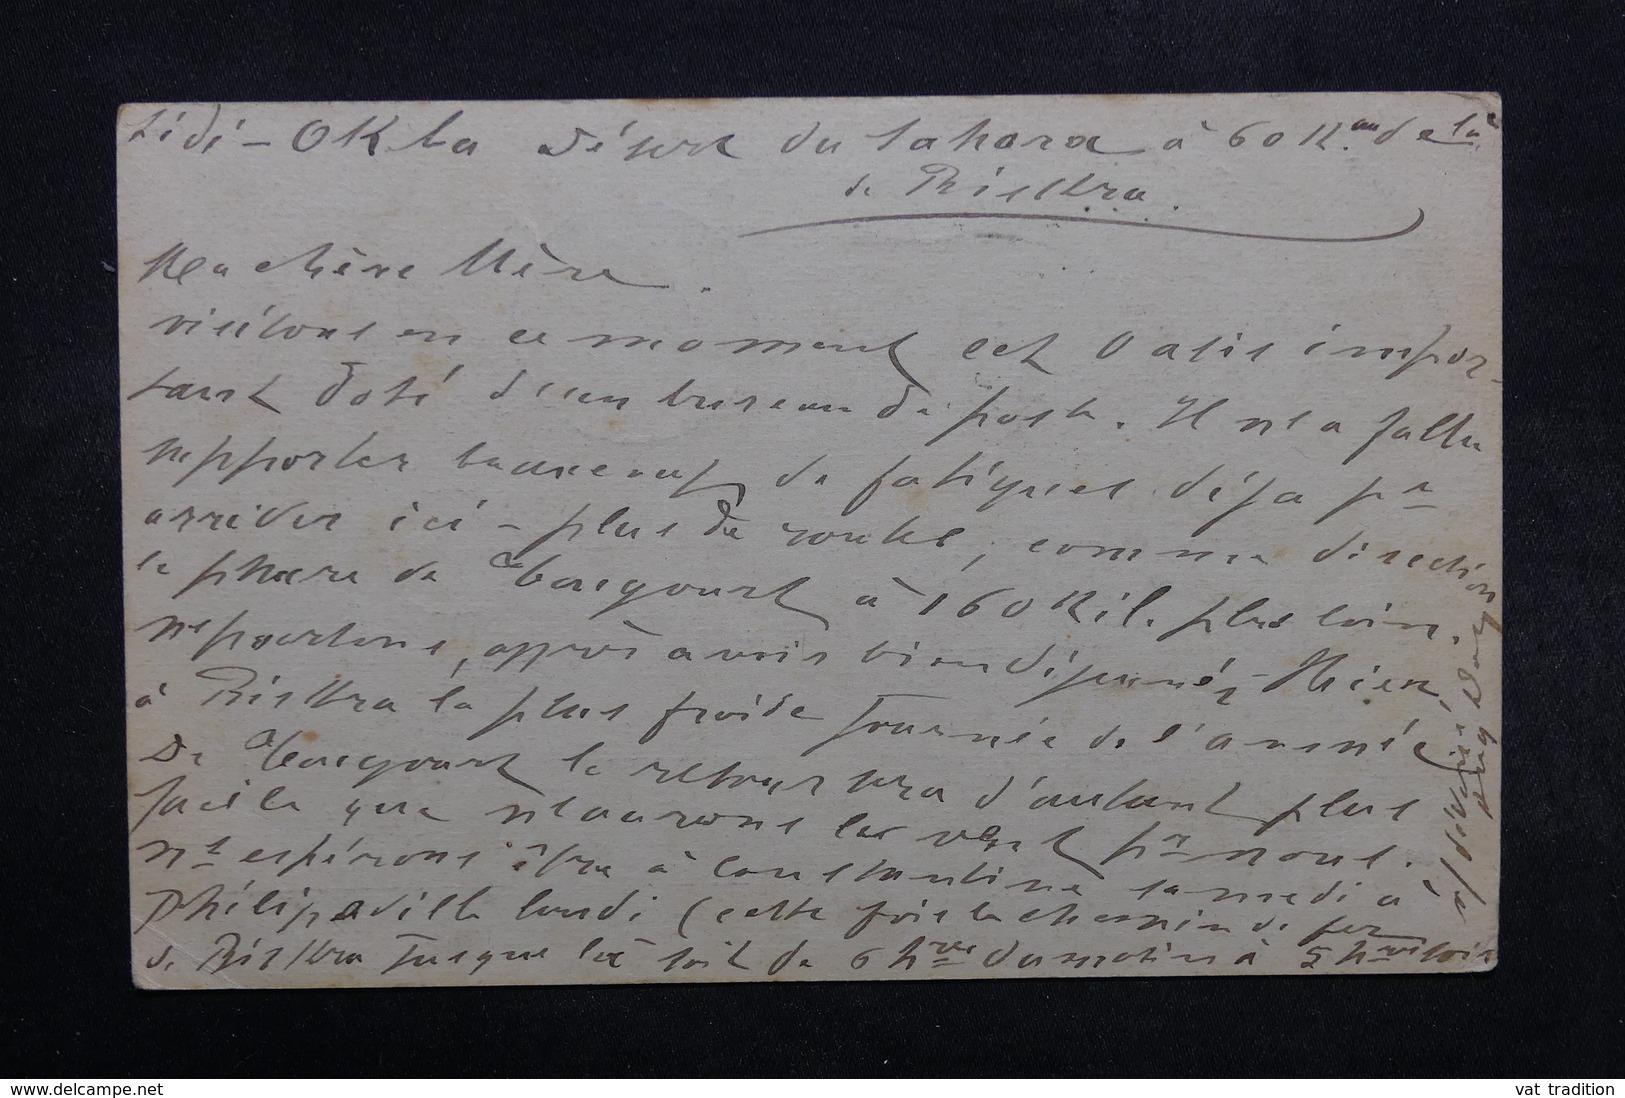 Sidi-Okba Désert du Sahara à 60 K. au delà
de Biskra.
Ma chère Mère.
visitons en ce moment cet Oasis impor-
tant doté d'un bureau de poste. Il ns a fallu
supporter beaucoup de fatigues déjà pr
arriver ici - plus de routes, comme direction
le phare de Tougourt à 160 Kil. plus loin.
ns partons, après avoir bien déjeuné, Hier,
à Biskra la plus froide journée de l'année
De Tougourt le retour sera d'autant plus
facile que ns aurons le vent pr nous.
ns espérons être à Constantine samedi à
Philippeville lundi (cette fois le chemin de fer
de Biskra jusque là soit de 6 hres du matin à 5 hres soir
www.delcampe.net
vat tradition